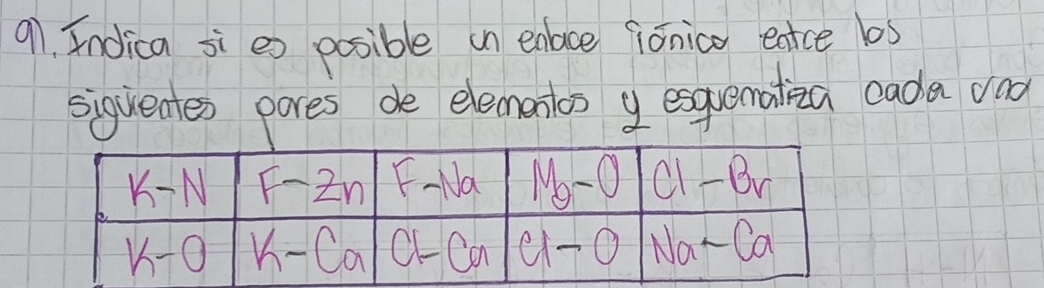 9). Indica si es posible un enlace iónico entre los
siguientes pares de elementos y esquematiza cada uno
K-N F-Zn F-Na Mg-O Cl-Br
K-O K-Ca Cl-Ca Cl-O Na-Ca